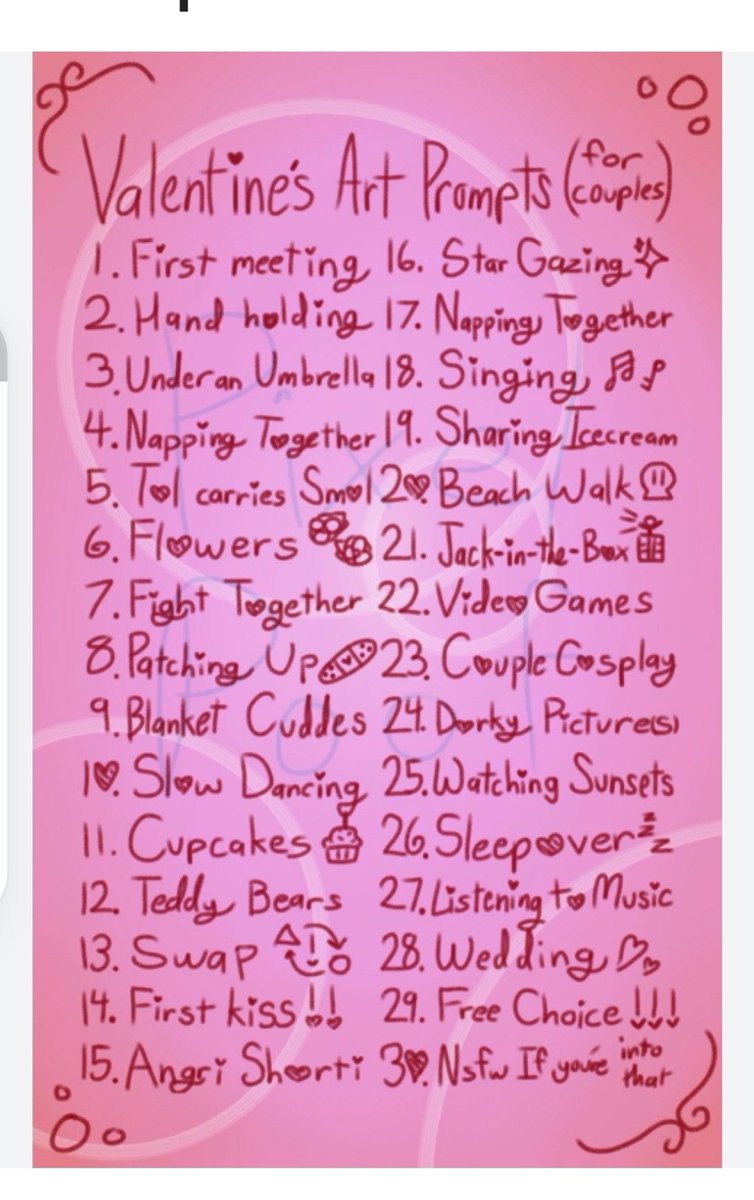 Valentine's Art Prompts (for couples)
1. First meeting
2. Hand holding
3. Under an Umbrella
4. Napping Together
5. Tol carries Smol
6. Flowers
7. Fight Together
8. Patching Up
9. Blanket Cuddes
10. Slow Dancing
11. Cupcakes
12. Teddy Bears
13. Swap
14. First kiss!!
15. Angri Shorti
16. Star Gazing
17. Napping Together
18. Singing
19. Sharing Icecream
20. Beach Walk
21. Jack-in-the-Box
22. Video Games
23. Couple Cosplay
24. Dorky Picture(s)
25. Watching Sunsets
26. Sleepover zzz
27. Listening to Music
28. Wedding
29. Free Choice!!!
30. Nsfw If you're into that
Pixel